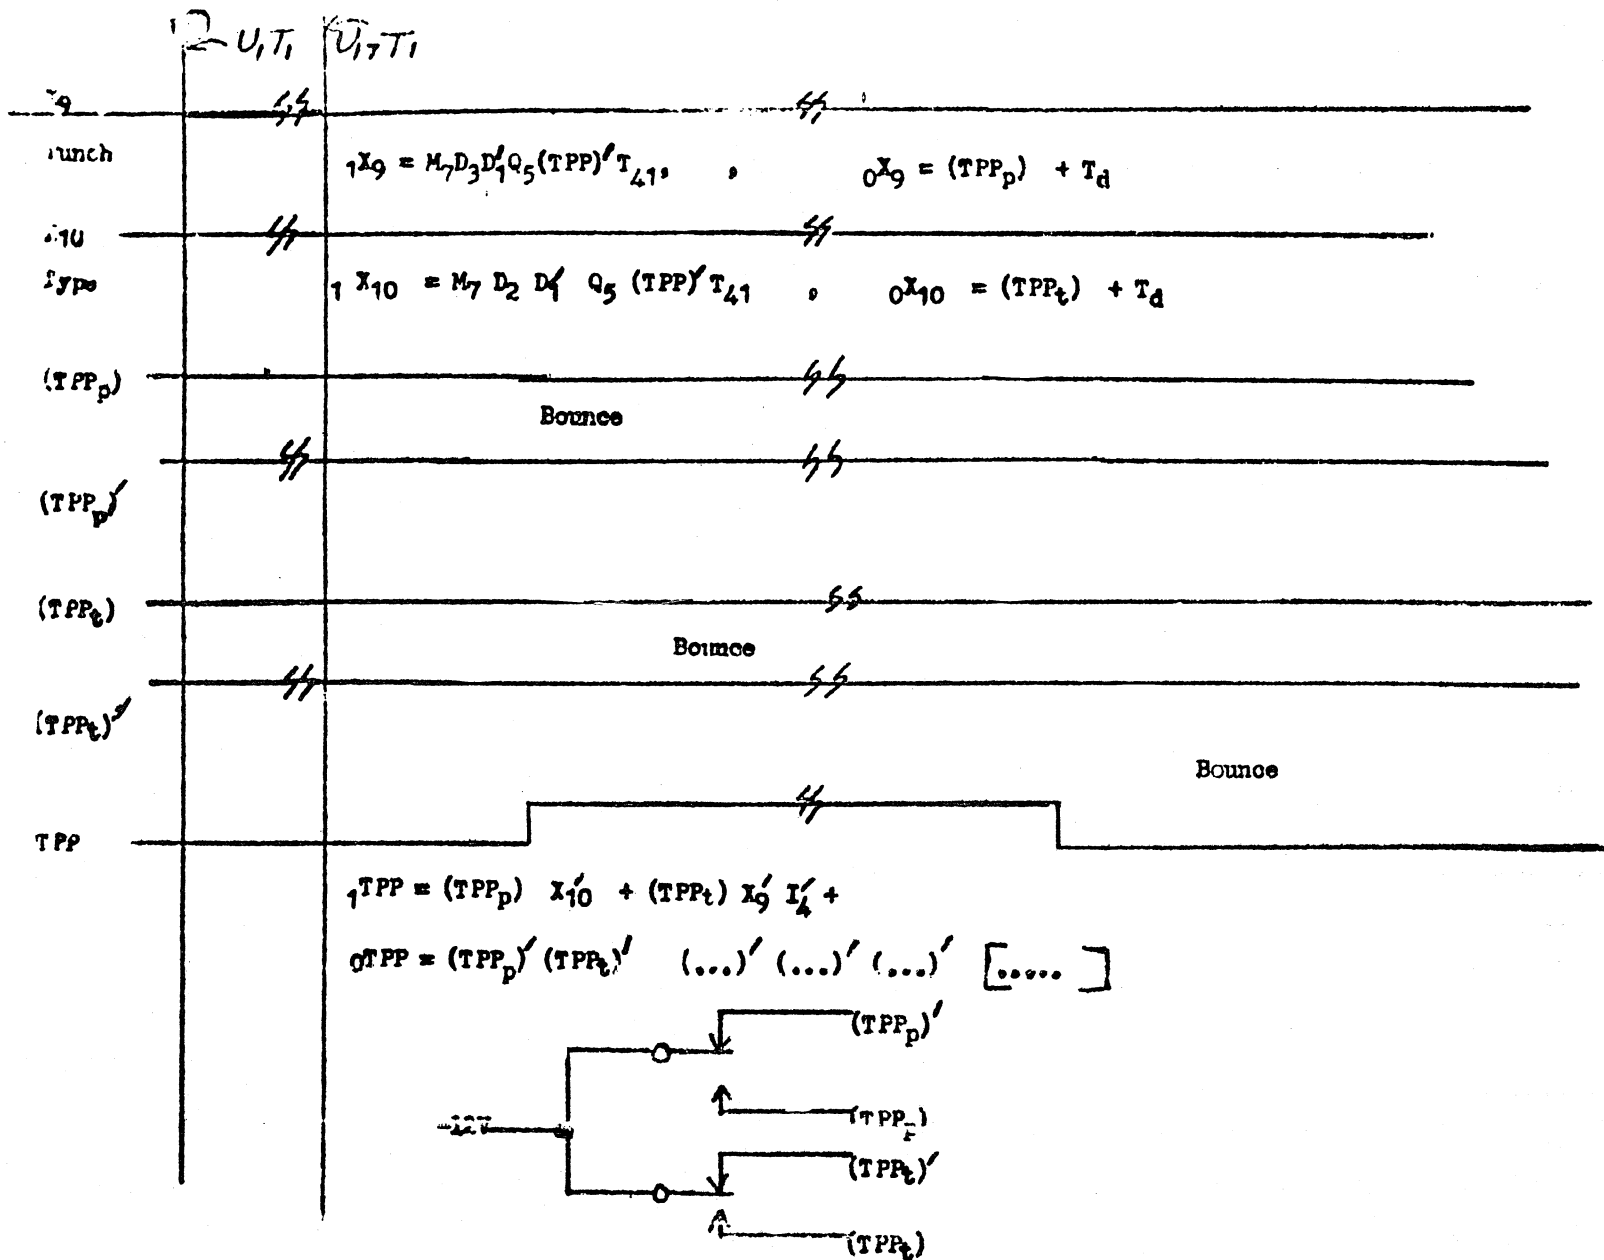 U₁T₁ U₁₇T₁
₁X₉ = M₇D₃D₁′Q₅(TPP)′T₄₁, , ₀X₉ = (TPPₚ) + T_d
Type ₁X₁₀ = M₇ D₂ D₁′ Q₅ (TPP)′T₄₁ , ₀X₁₀ = (TPPₜ) + T_d
(TPPₚ)
Bounce
(TPPₚ)′
(TPPₜ)
Bounce
(TPPₜ)′
Bounce
TPP
₁TPP = (TPPₚ) X₁₀′ + (TPPₜ) X₉′ I₄′ +
₀TPP = (TPPₚ)′ (TPPₜ)′ (...)′ (...)′ (...)′ [.....]
(TPPₚ)′
(TPPₜ)′
(TPPₜ)